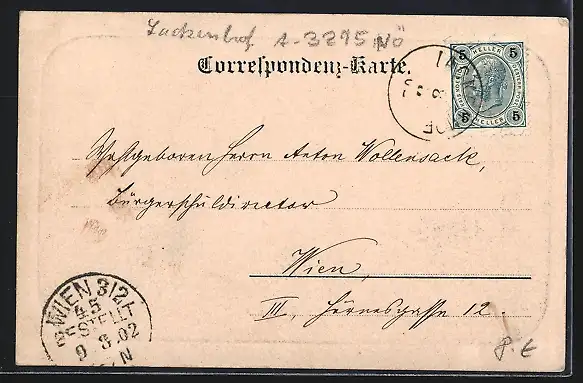 Lackenhof A-3295 NÖ
Correspondenz-Karte.
5 HELLER 5
5 HELLER 5
Wohlgeboren Herrn Anton Wollensack,
Bürgerschuldirector
Wien,
III, Hörnesgasse 12.
WIEN 3/2
BESTELLT
9 8 02